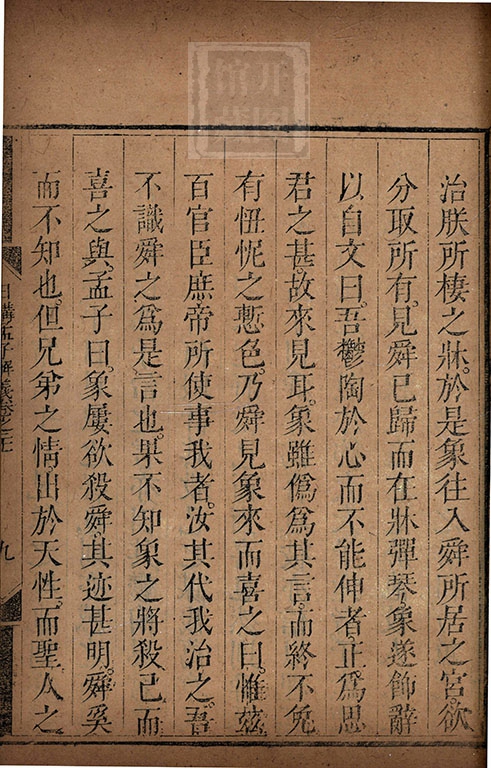 治朕所棲之牀。於是象往入舜所居之宮。欲
分取所有。見舜已歸而在牀彈琴。象遂飾辭
以自文曰。吾鬱陶於心而不能伸者。正爲思
君之甚。故來見耳。象雖僞爲其言。而終不免
有忸怩之慙色。乃舜見象來而喜之曰。惟茲
百官臣庶。帝所使事我者。汝其代我治之。吾
不識舜之爲是言也。果不知象之將殺己而
喜之與。孟子曰。象屢欲殺舜。其迹甚明。舜奚
而不知也。但兄弟之情出於天性。而聖人之
日講孟子解義卷之七
九